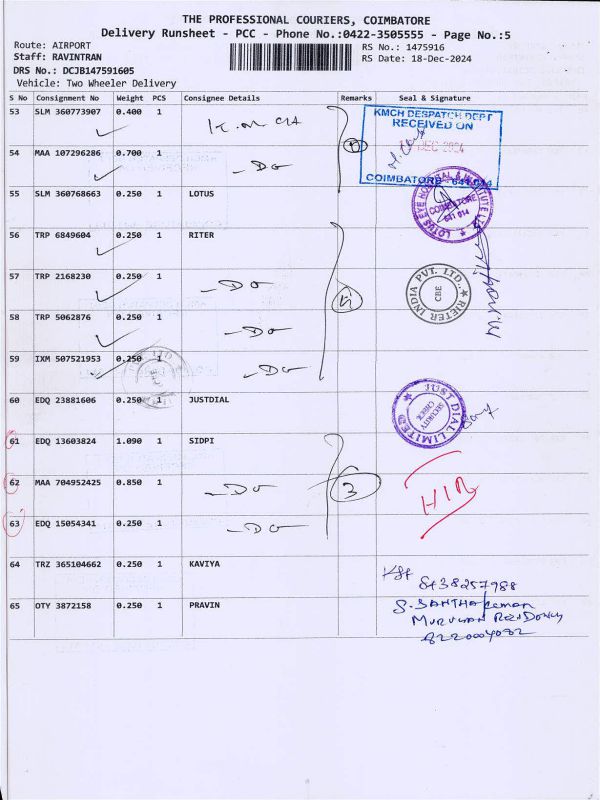 THE PROFESSIONAL COURIERS, COIMBATORE
Delivery Runsheet - PCC - Phone No.:0422-3505555 - Page No.:5
Route: AIRPORT
RS No.: 1475916
Staff: RAVINTRAN
RS Date: 18-Dec-2024
DRS No.: DCJB147591605
Vehicle: Two Wheeler Delivery
S No Consignment No Weight PCS Consignee Details Remarks Seal & Signature
53 SLM 360773907 0.400 1
KMCH DESPATCH DEPT
RECEIVED ON
DEC 2024
COIMBATORE - 641 014
54 MAA 107296286 0.700 1 -Do
55 SLM 360768663 0.250 1 LOTUS
LOTUS EYE HOSPITAL & INSTITUTE LTD.
COIMBATORE
641 014
56 TRP 6849604 0.250 1 RITER
57 TRP 2168230 0.250 1 -Do
RIETER INDIA PVT. LTD.,
CBE
58 TRP 5062876 0.250 1 -Do
59 IXM 507521953 0.250 1 -Do
60 EDQ 23881606 0.250 1 JUSTDIAL
JUST DIAL LIMITED
SECURITY
CHECK
61 EDQ 13603824 1.090 1 SIDPI
62 MAA 704952425 0.850 1 -Do 3
63 EDQ 15054341 0.250 1 -Do
64 TRZ 365104662 0.250 1 KAVIYA
8438257988
65 OTY 3872158 0.250 1 PRAVIN
8220004082